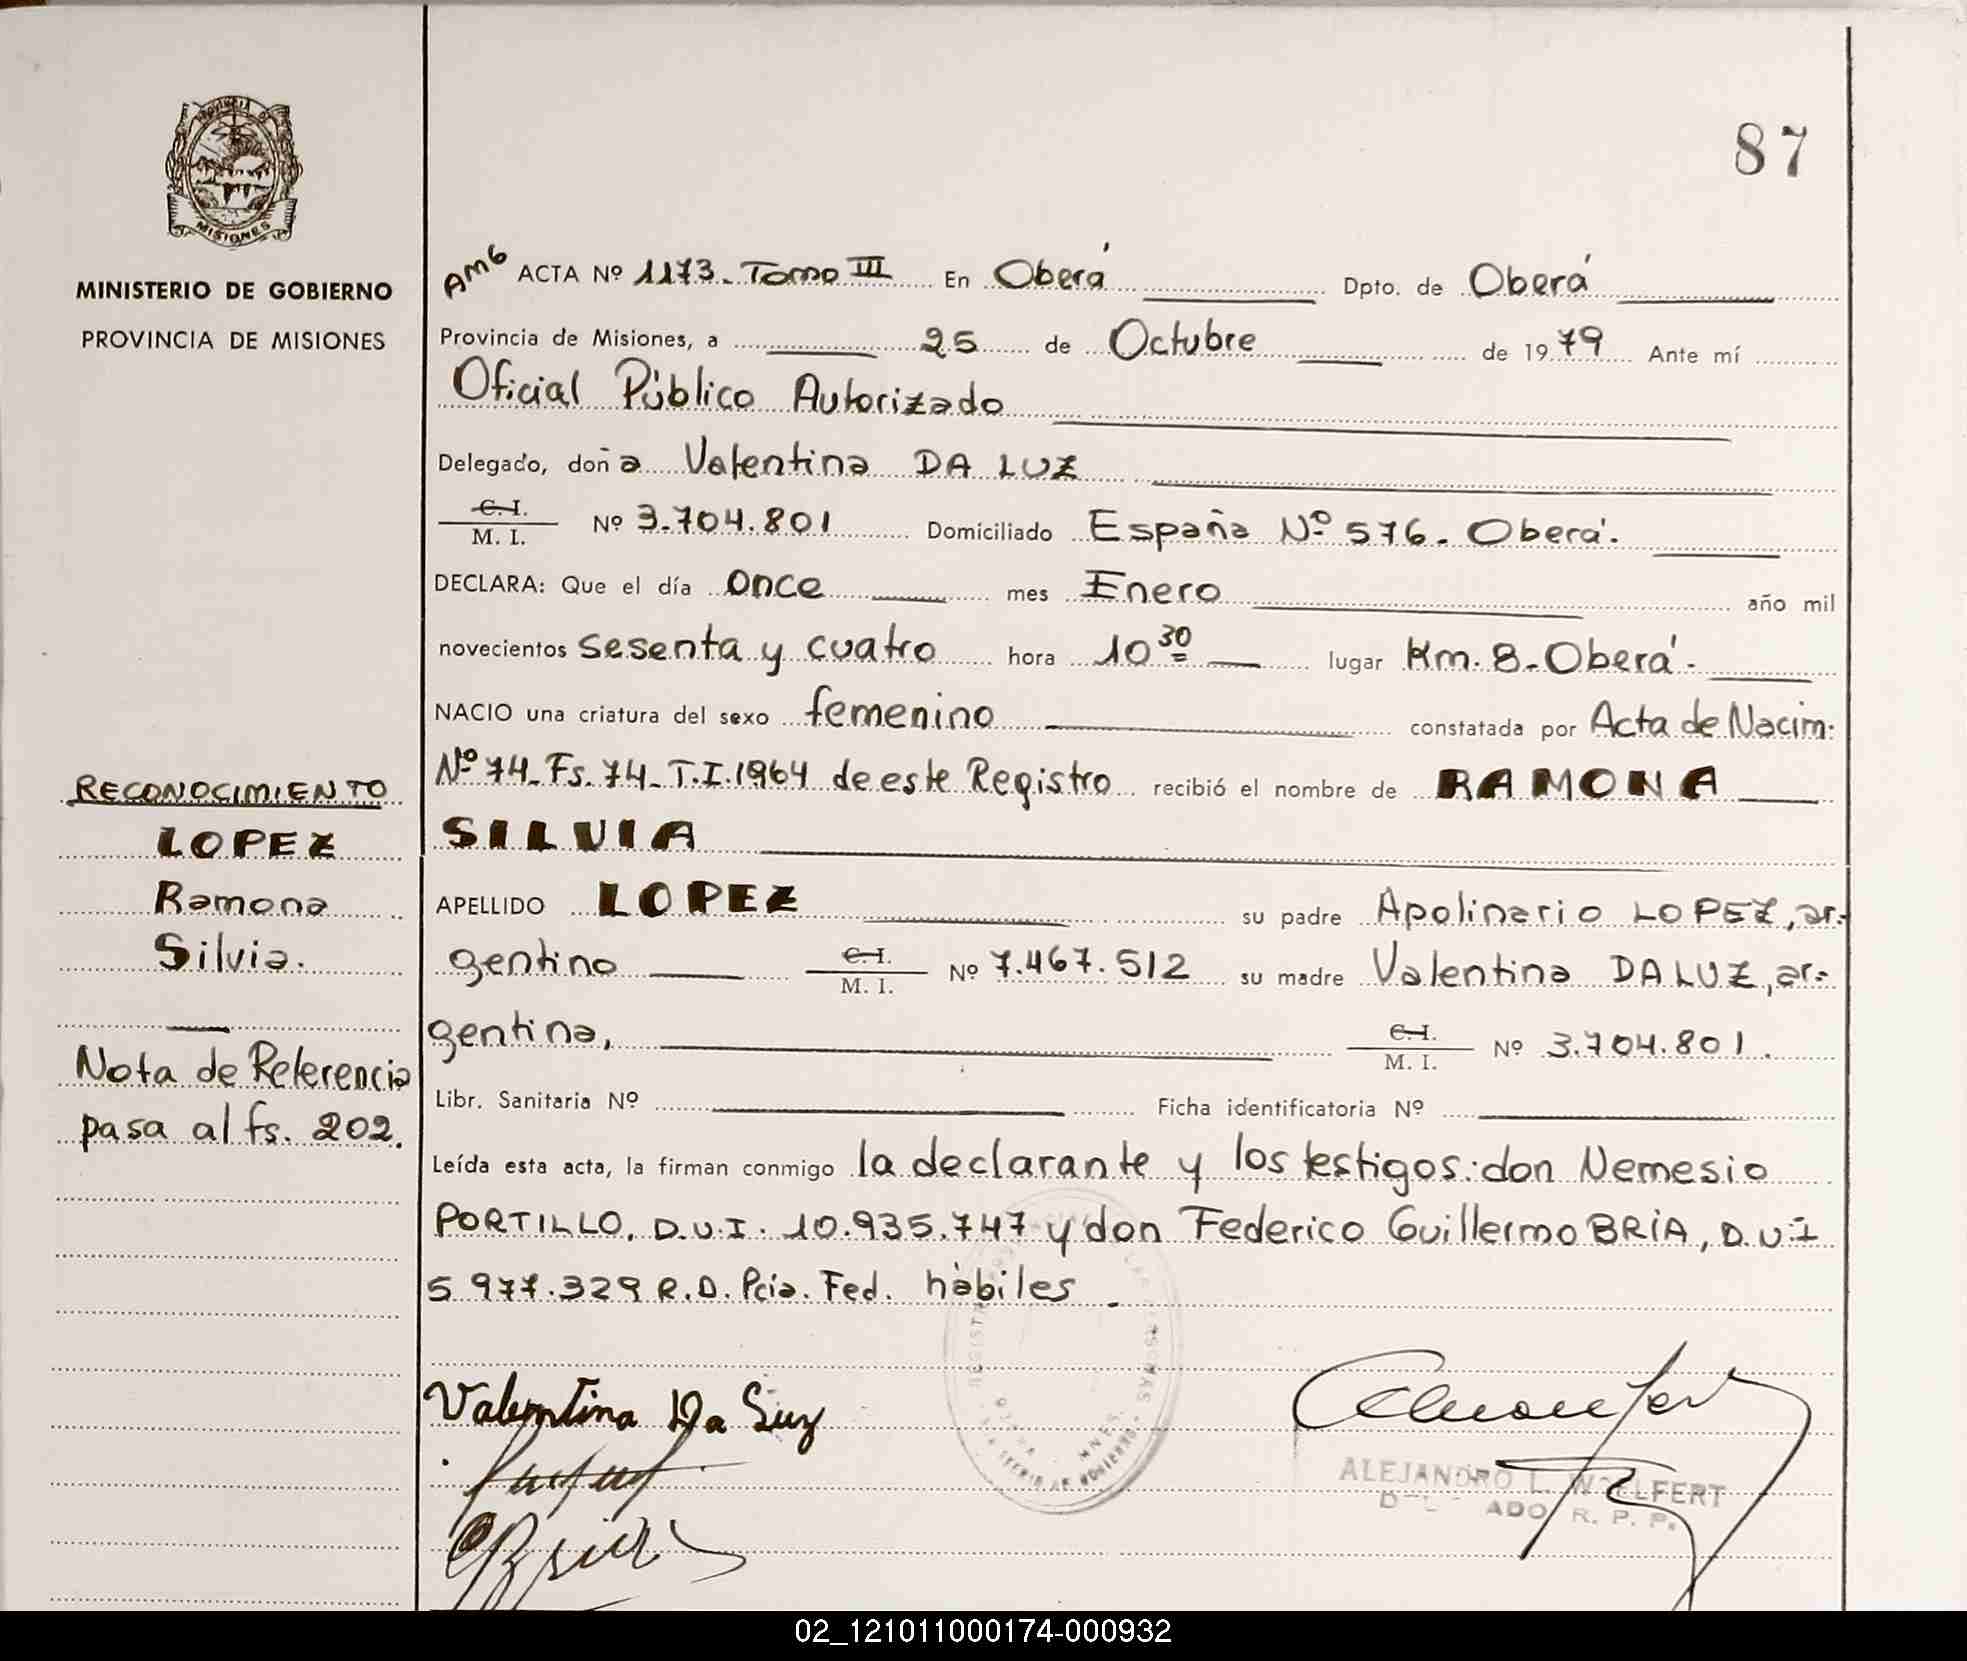 PROVINCIA DE
MISIONES
MINISTERIO DE GOBIERNO
PROVINCIA DE MISIONES
RECONOCIMIENTO
LOPEZ
Ramona
Silvia.
Nota de Referencia
pasa al fs. 202.
87
AMG ACTA Nº 1173_Tomo III En Oberá Dpto. de Oberá
Provincia de Misiones, a 25 de Octubre de 1979 Ante mí
Oficial Público Autorizado
Delegado, doña Valentina DA LUZ
C.I.
M. I. Nº 3.704.801 Domiciliado España Nº 576. Oberá.
DECLARA: Que el día once mes Enero año mil
novecientos sesenta y cuatro hora 10 30 lugar Km. 8_Oberá.
NACIO una criatura del sexo femenino constatada por Acta de Nacim.
Nº 74_Fs. 74_T.I.1964 de este Registro recibió el nombre de RAMONA
SILVIA
APELLIDO LOPEZ su padre Apolinario LOPEZ, ar-
gentino C.I. M. I. Nº 7.467.512 su madre Valentina DA LUZ, ar-
gentina, C.I. M. I. Nº 3.704.801.
Libr. Sanitaria Nº Ficha identificatoria Nº
Leída esta acta, la firman conmigo la declarante y los testigos: don Nemesio
PORTILLO, D.U.I. 10.935.747 y don Federico Guillermo BRIA, D.U.I
5 977.329 R.D. Pcia. Fed. hábiles.
Valentina Da Luz
ALEJANDRO L. WOELFERT
DELEGADO R. P. P.
02_121011000174-000932